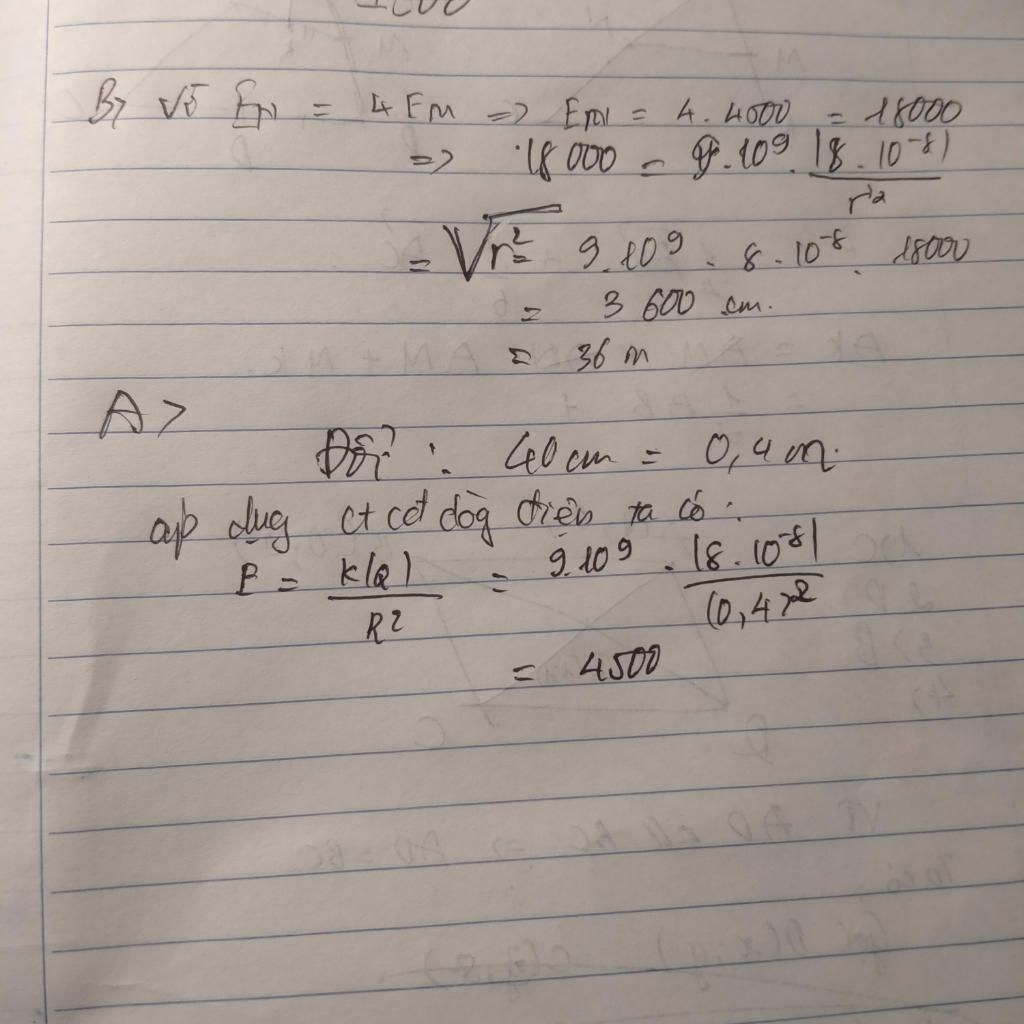 B> Vì EN = 4 EM => EN = 4. 4500 = 18000
=> 18 000 = 9.10⁹ . |8 . 10⁻⁸| / r²
= √r² = 9.10⁹ . 8 . 10⁻⁸ . 18000
= 3 600 cm.
= 36 m
A>
Đổi : 40 cm = 0,4 m.
áp dụg ct cđ dòg điện ta có :
E = K|Q| / R² = 9.10⁹ . |8 . 10⁻⁸| / (0,4)²
= 4500